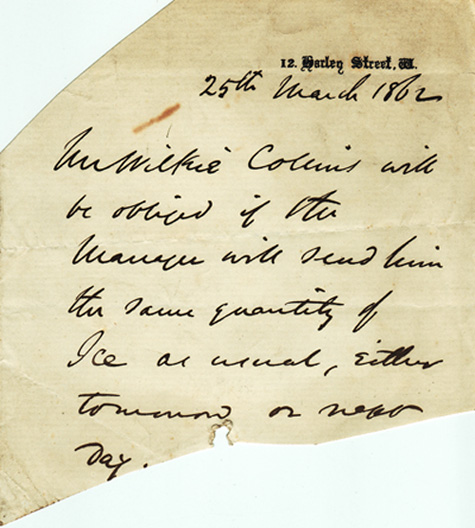 12. Harley Street, W.
25th March 1862
Mr Wilkie Collins will
be obliged if the
Manager will send him
the same quantity of
Ice as usual, either
tomorrow or next
day.